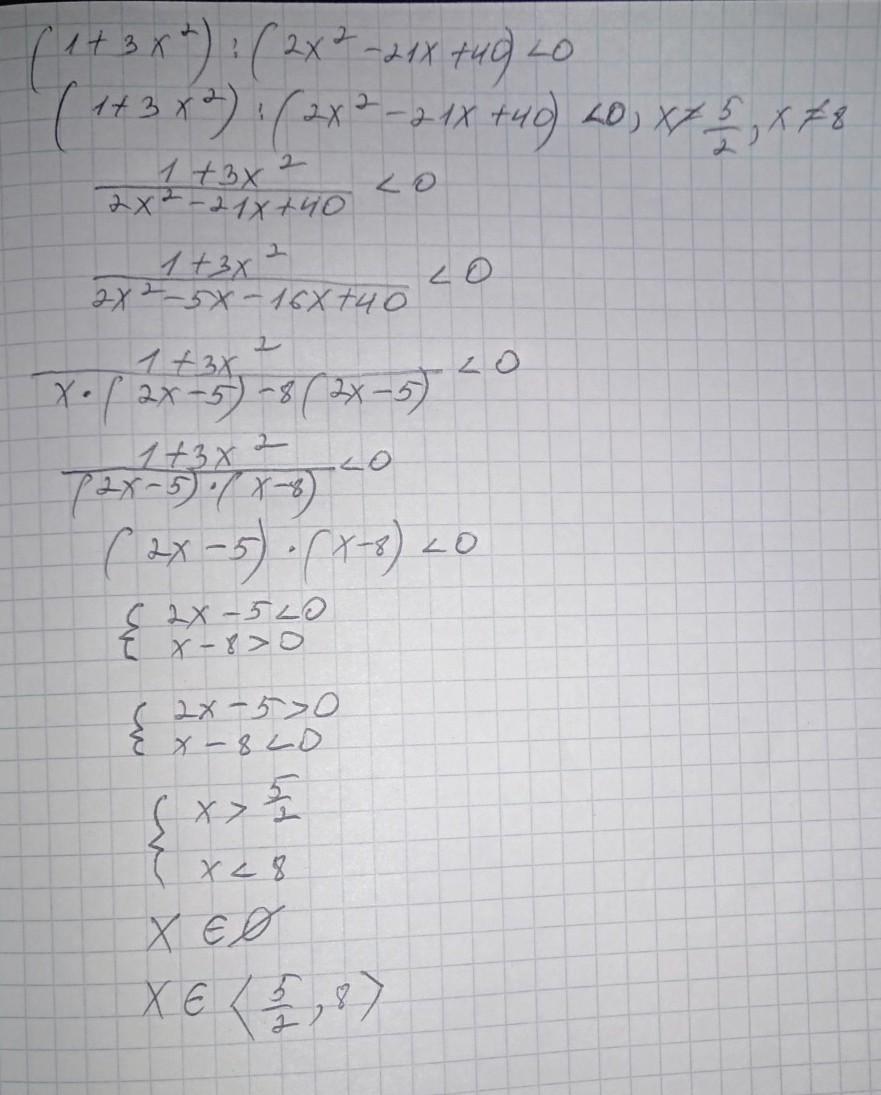 (1+3x²):(2x²-21x+40)<0
(1+3x²):(2x²-21x+40)<0, x≠5/2, x≠8
(1+3x²)/(2x²-21x+40)<0
(1+3x²)/(2x²-5x-16x+40)<0
(1+3x²)/(x·(2x-5)-8(2x-5))<0
(1+3x²)/((2x-5)·(x-8))<0
(2x-5)·(x-8)<0
{ 2x-5<0
x-8>0
{ 2x-5>0
x-8<0
{ x>5/2
x<8
X∈∅
X∈⟨5/2,8⟩